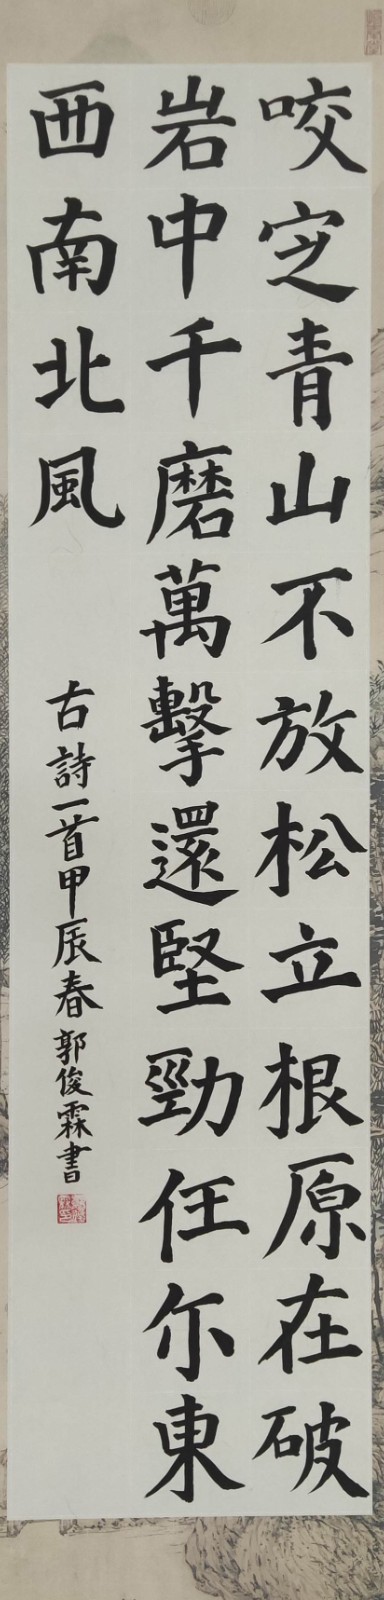 咬定青山不放松立根原在破
岩中千磨萬擊還堅勁任尔東
西南北風
古詩一首甲辰春郭俊霖書